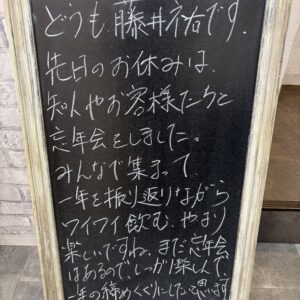 どうも藤井祐です。
先日のお休みは、
知人やお客様たちと
忘年会をしました。
みんなで集まって、
一年を振り返りながら
ワイワイ飲む、やはり
楽しいですね。まだ忘年会
はあるので、しっかり楽しんで
一年の締めくくりにしたいと思います。